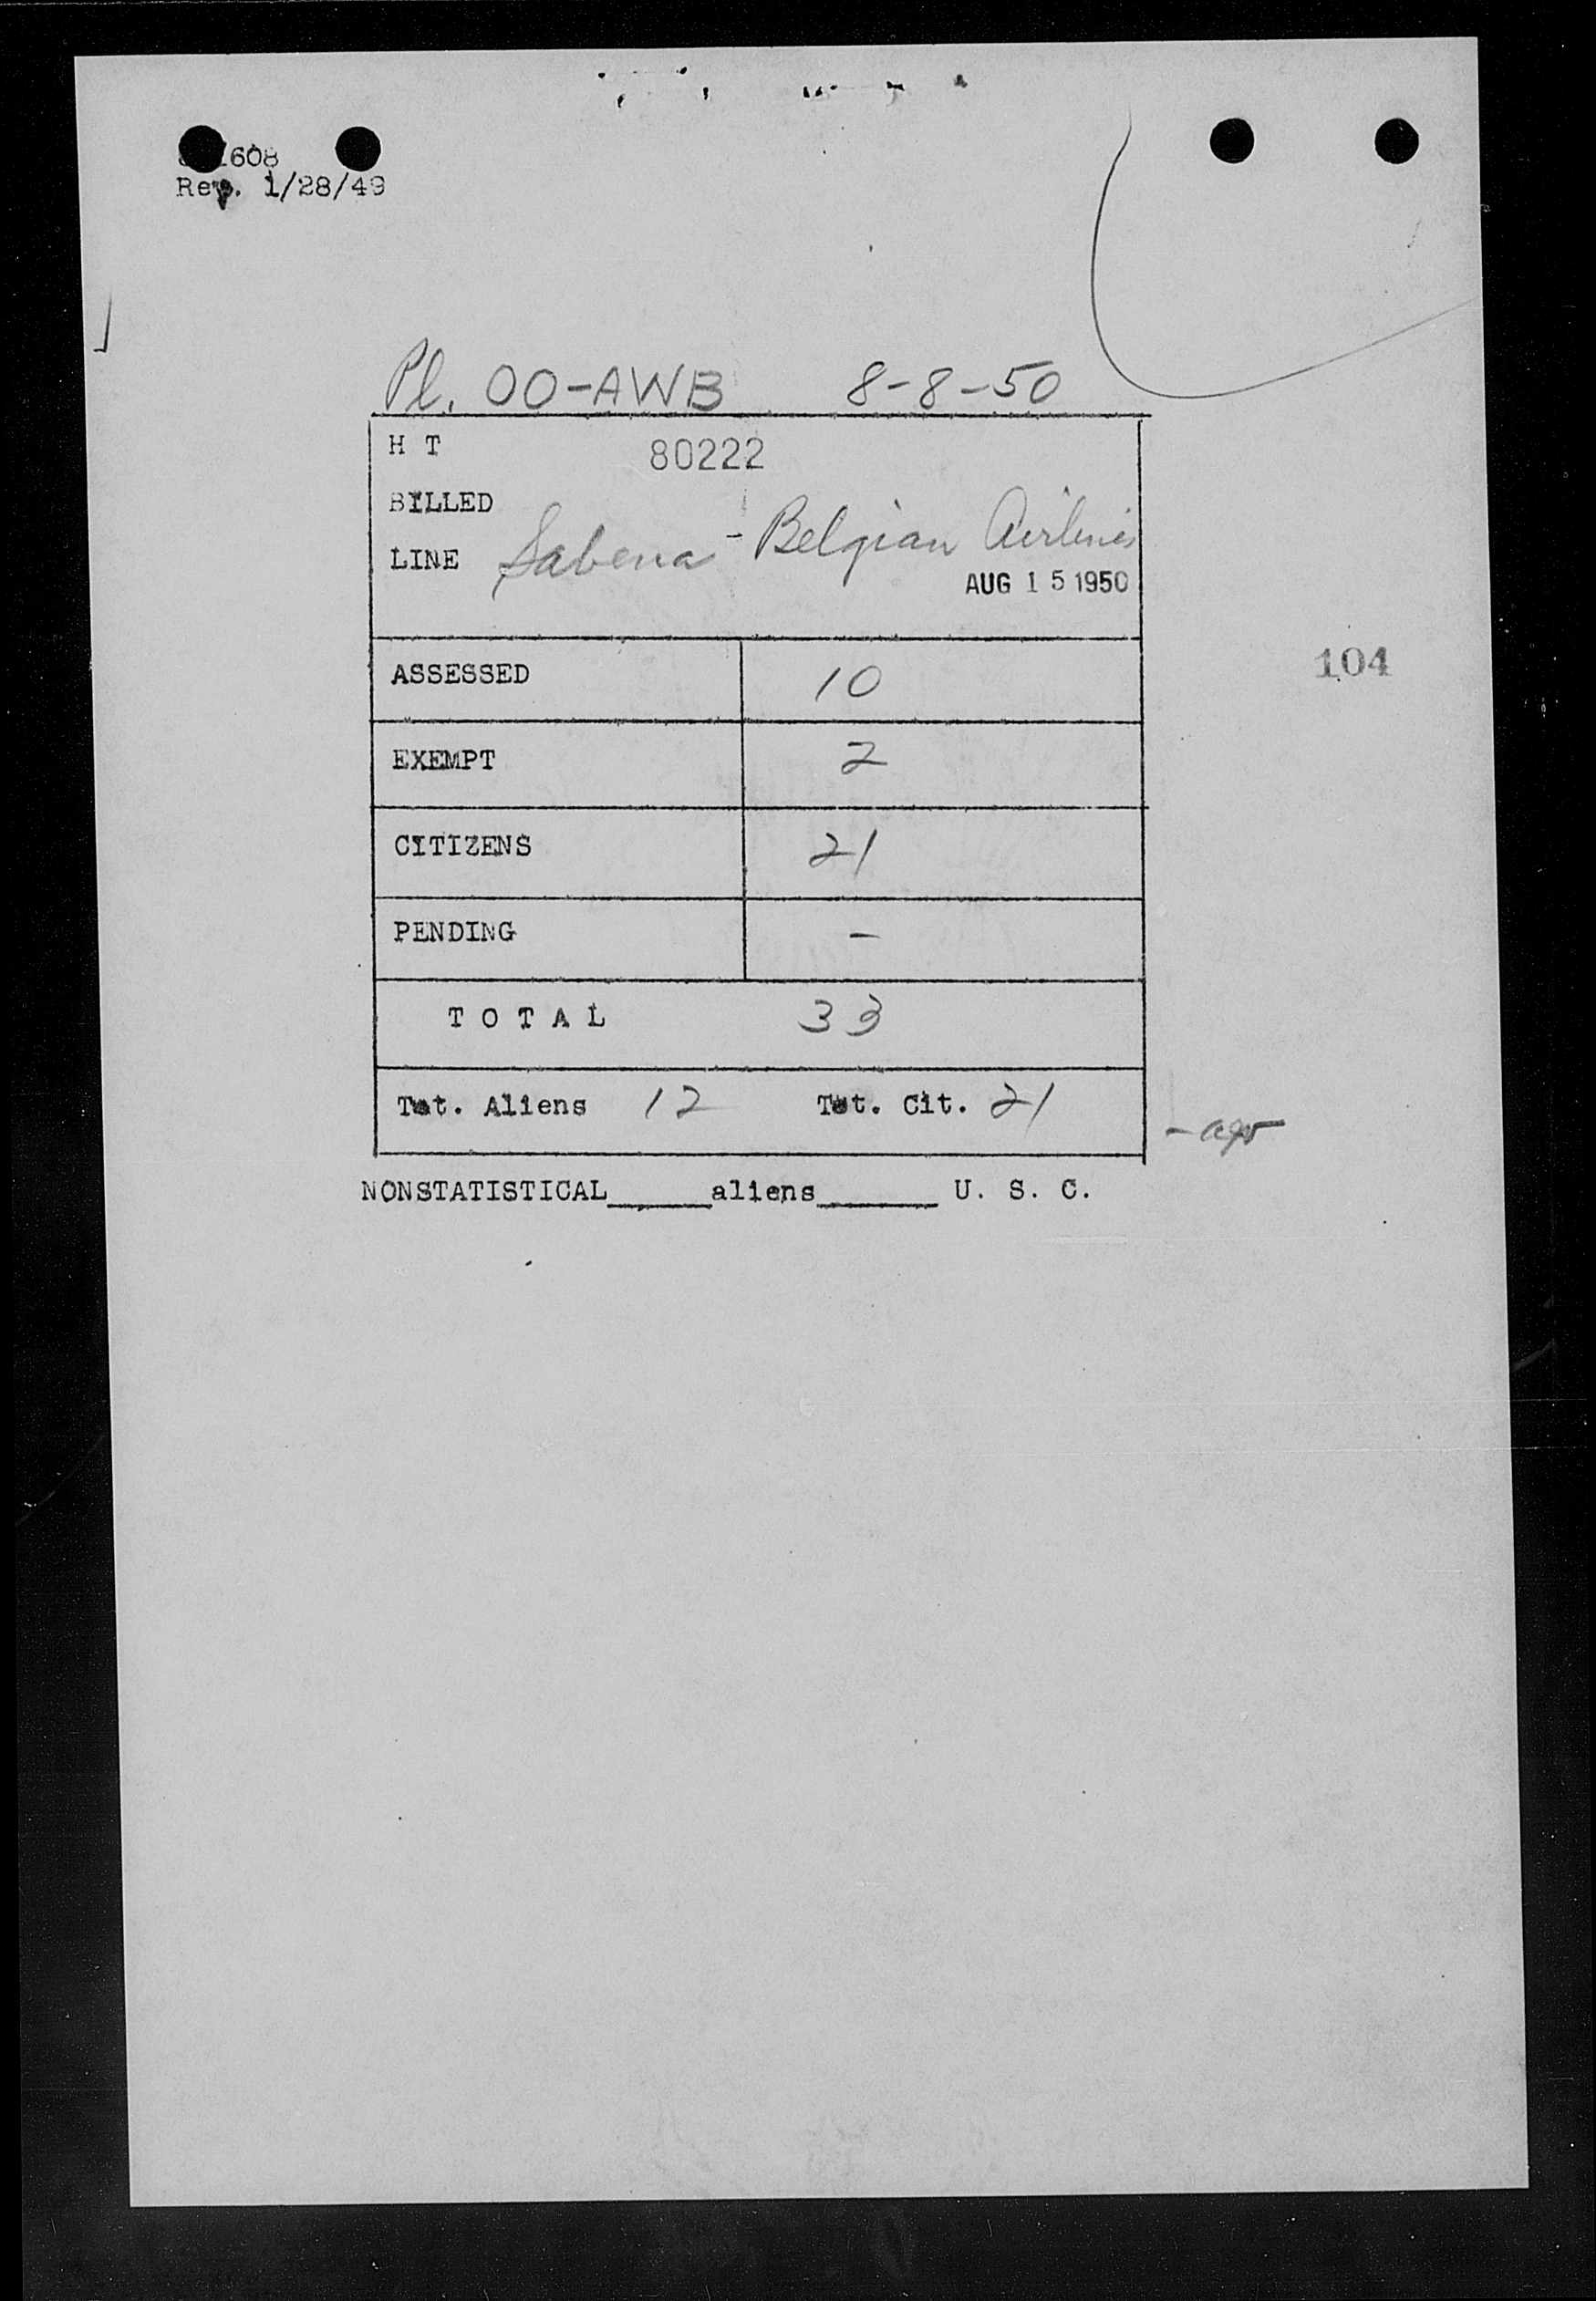 608
Rev. 1/28/49
Pl. OO-AWB 8-8-50
H T 80222
BILLED
LINE Sabena - Belgian Airlines
AUG 15 1950
104
ASSESSED 10
EXEMPT 2
CITIZENS 21
PENDING -
TOTAL 33
Tot. Aliens 12 Tot. Cit. 21
NONSTATISTICAL______aliens_______ U. S. C.